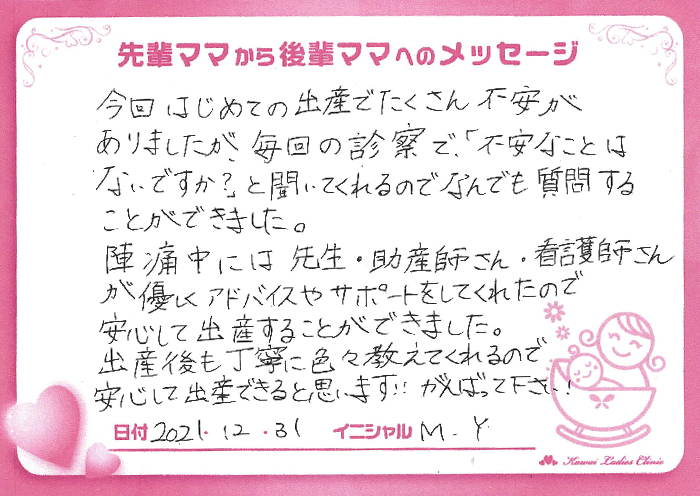 先輩ママから後輩ママへのメッセージ
今回はじめての出産でたくさん不安が
ありましたが、毎回の診察で、「不安なことは
ないですか?」と聞いてくれるのでなんでも質問する
ことができました。
陣痛中には先生・助産師さん・看護師さん
が優しくアドバイスやサポートをしてくれたので
安心して出産することができました。
出産後も丁寧に色々教えてくれるので
安心して出産できると思います!! がんばって下さい!
日付 2021.12.31 イニシャル M.Y
Kawai Ladies Clinic